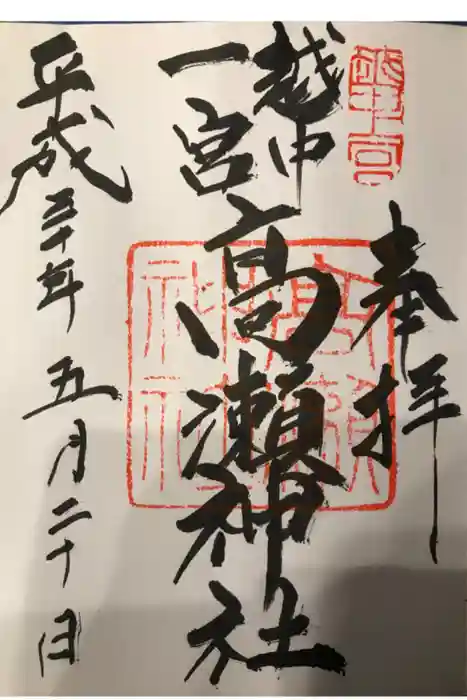 奉拝
越中
一宮
高瀬神社
平成三十年五月二十日
高瀬神社